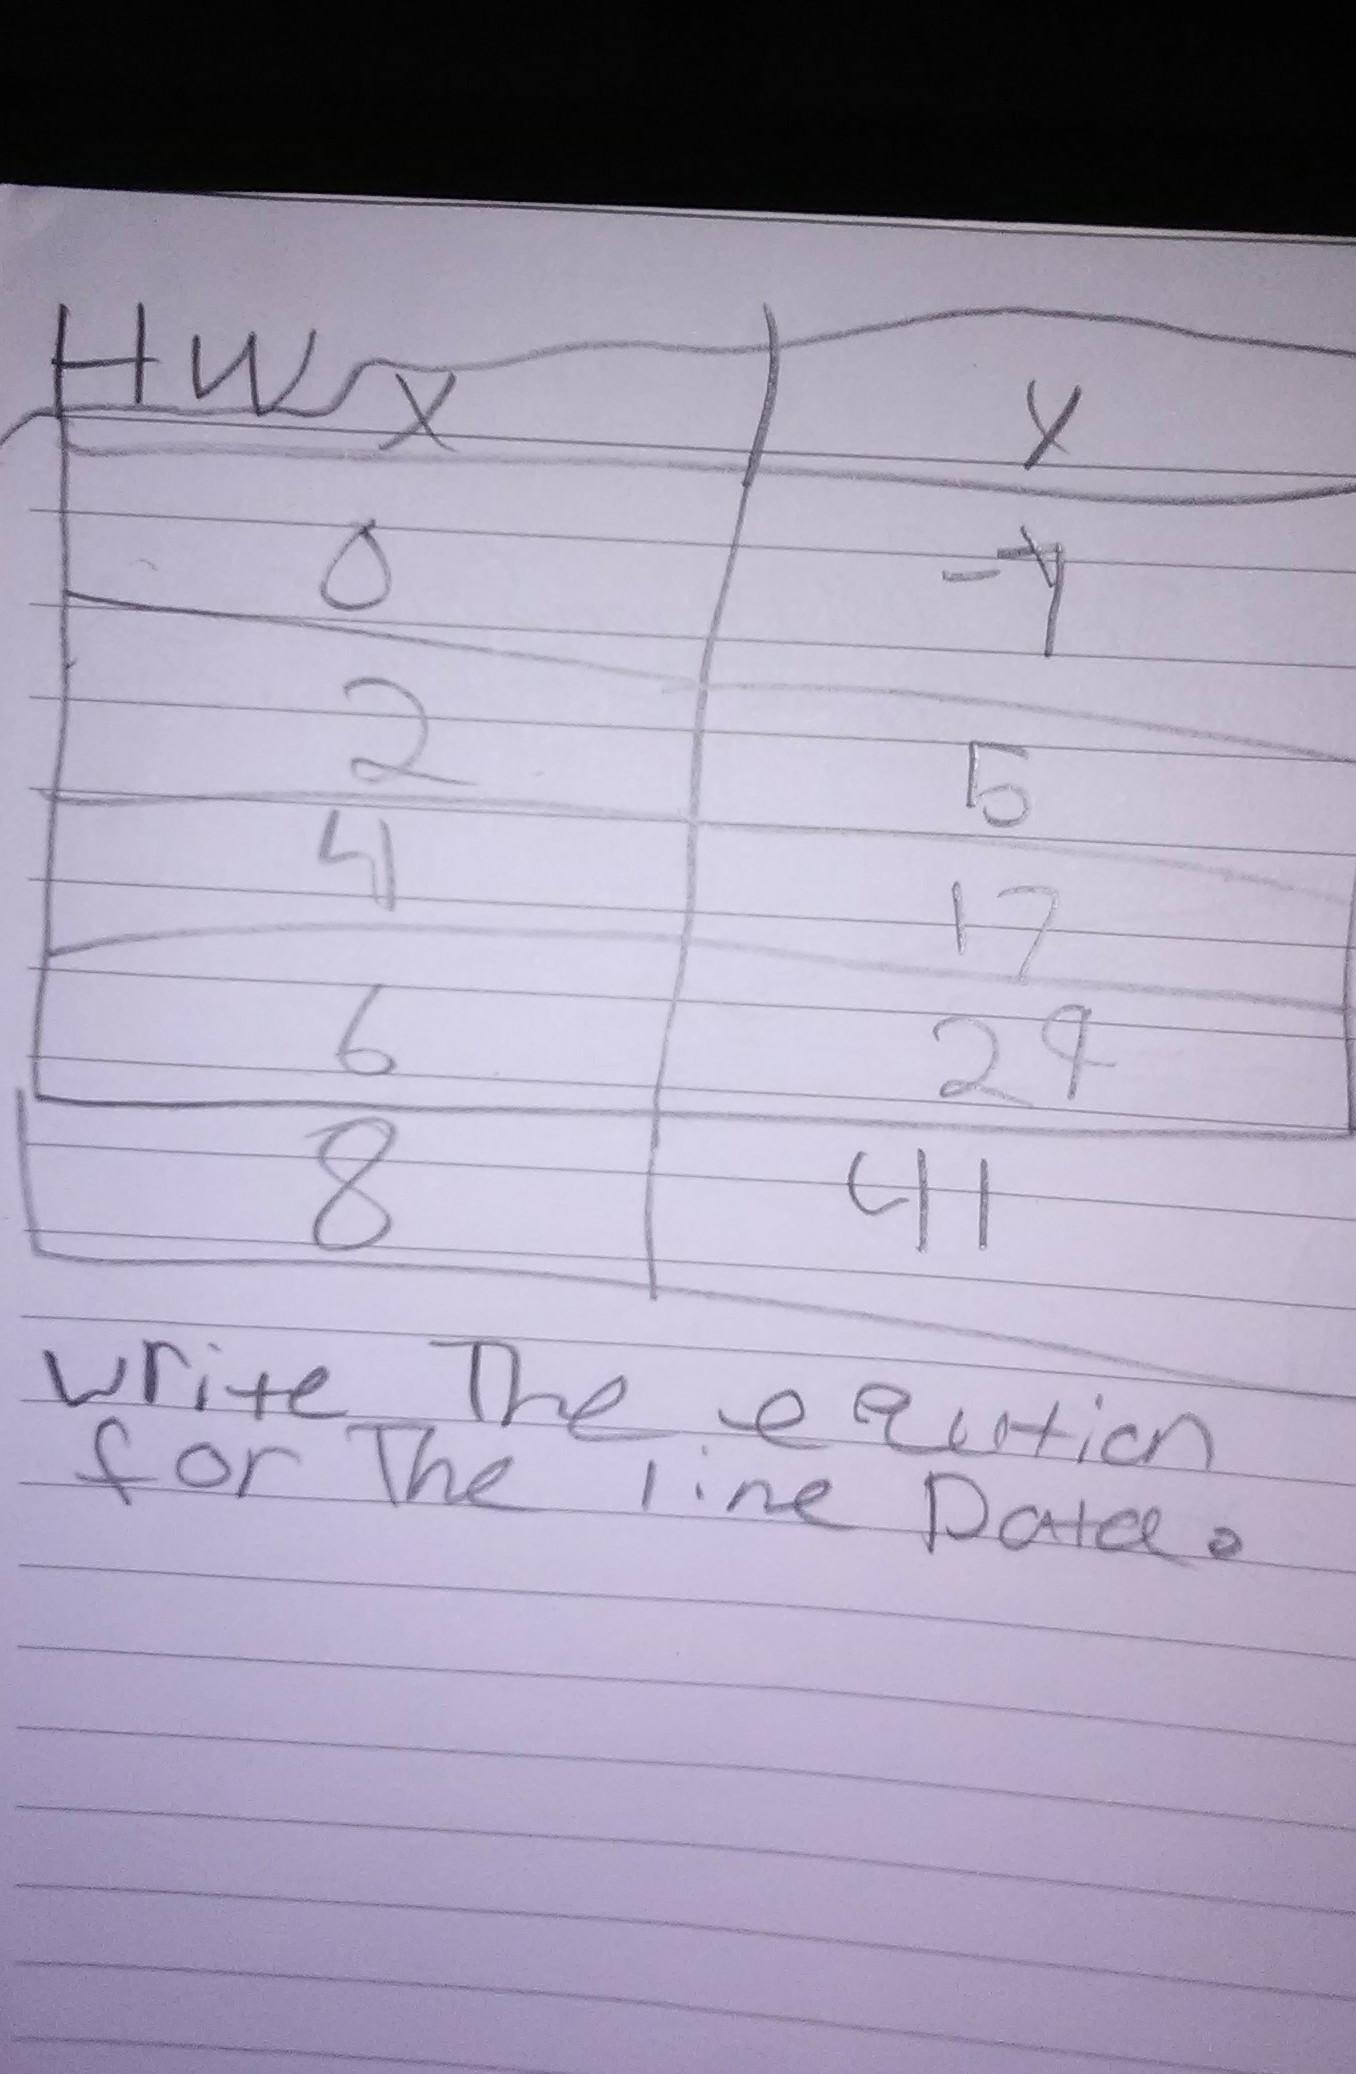 HW x y
0 -7
2 5
4 17
6 29
8 41
write The eqution
for The line Data.